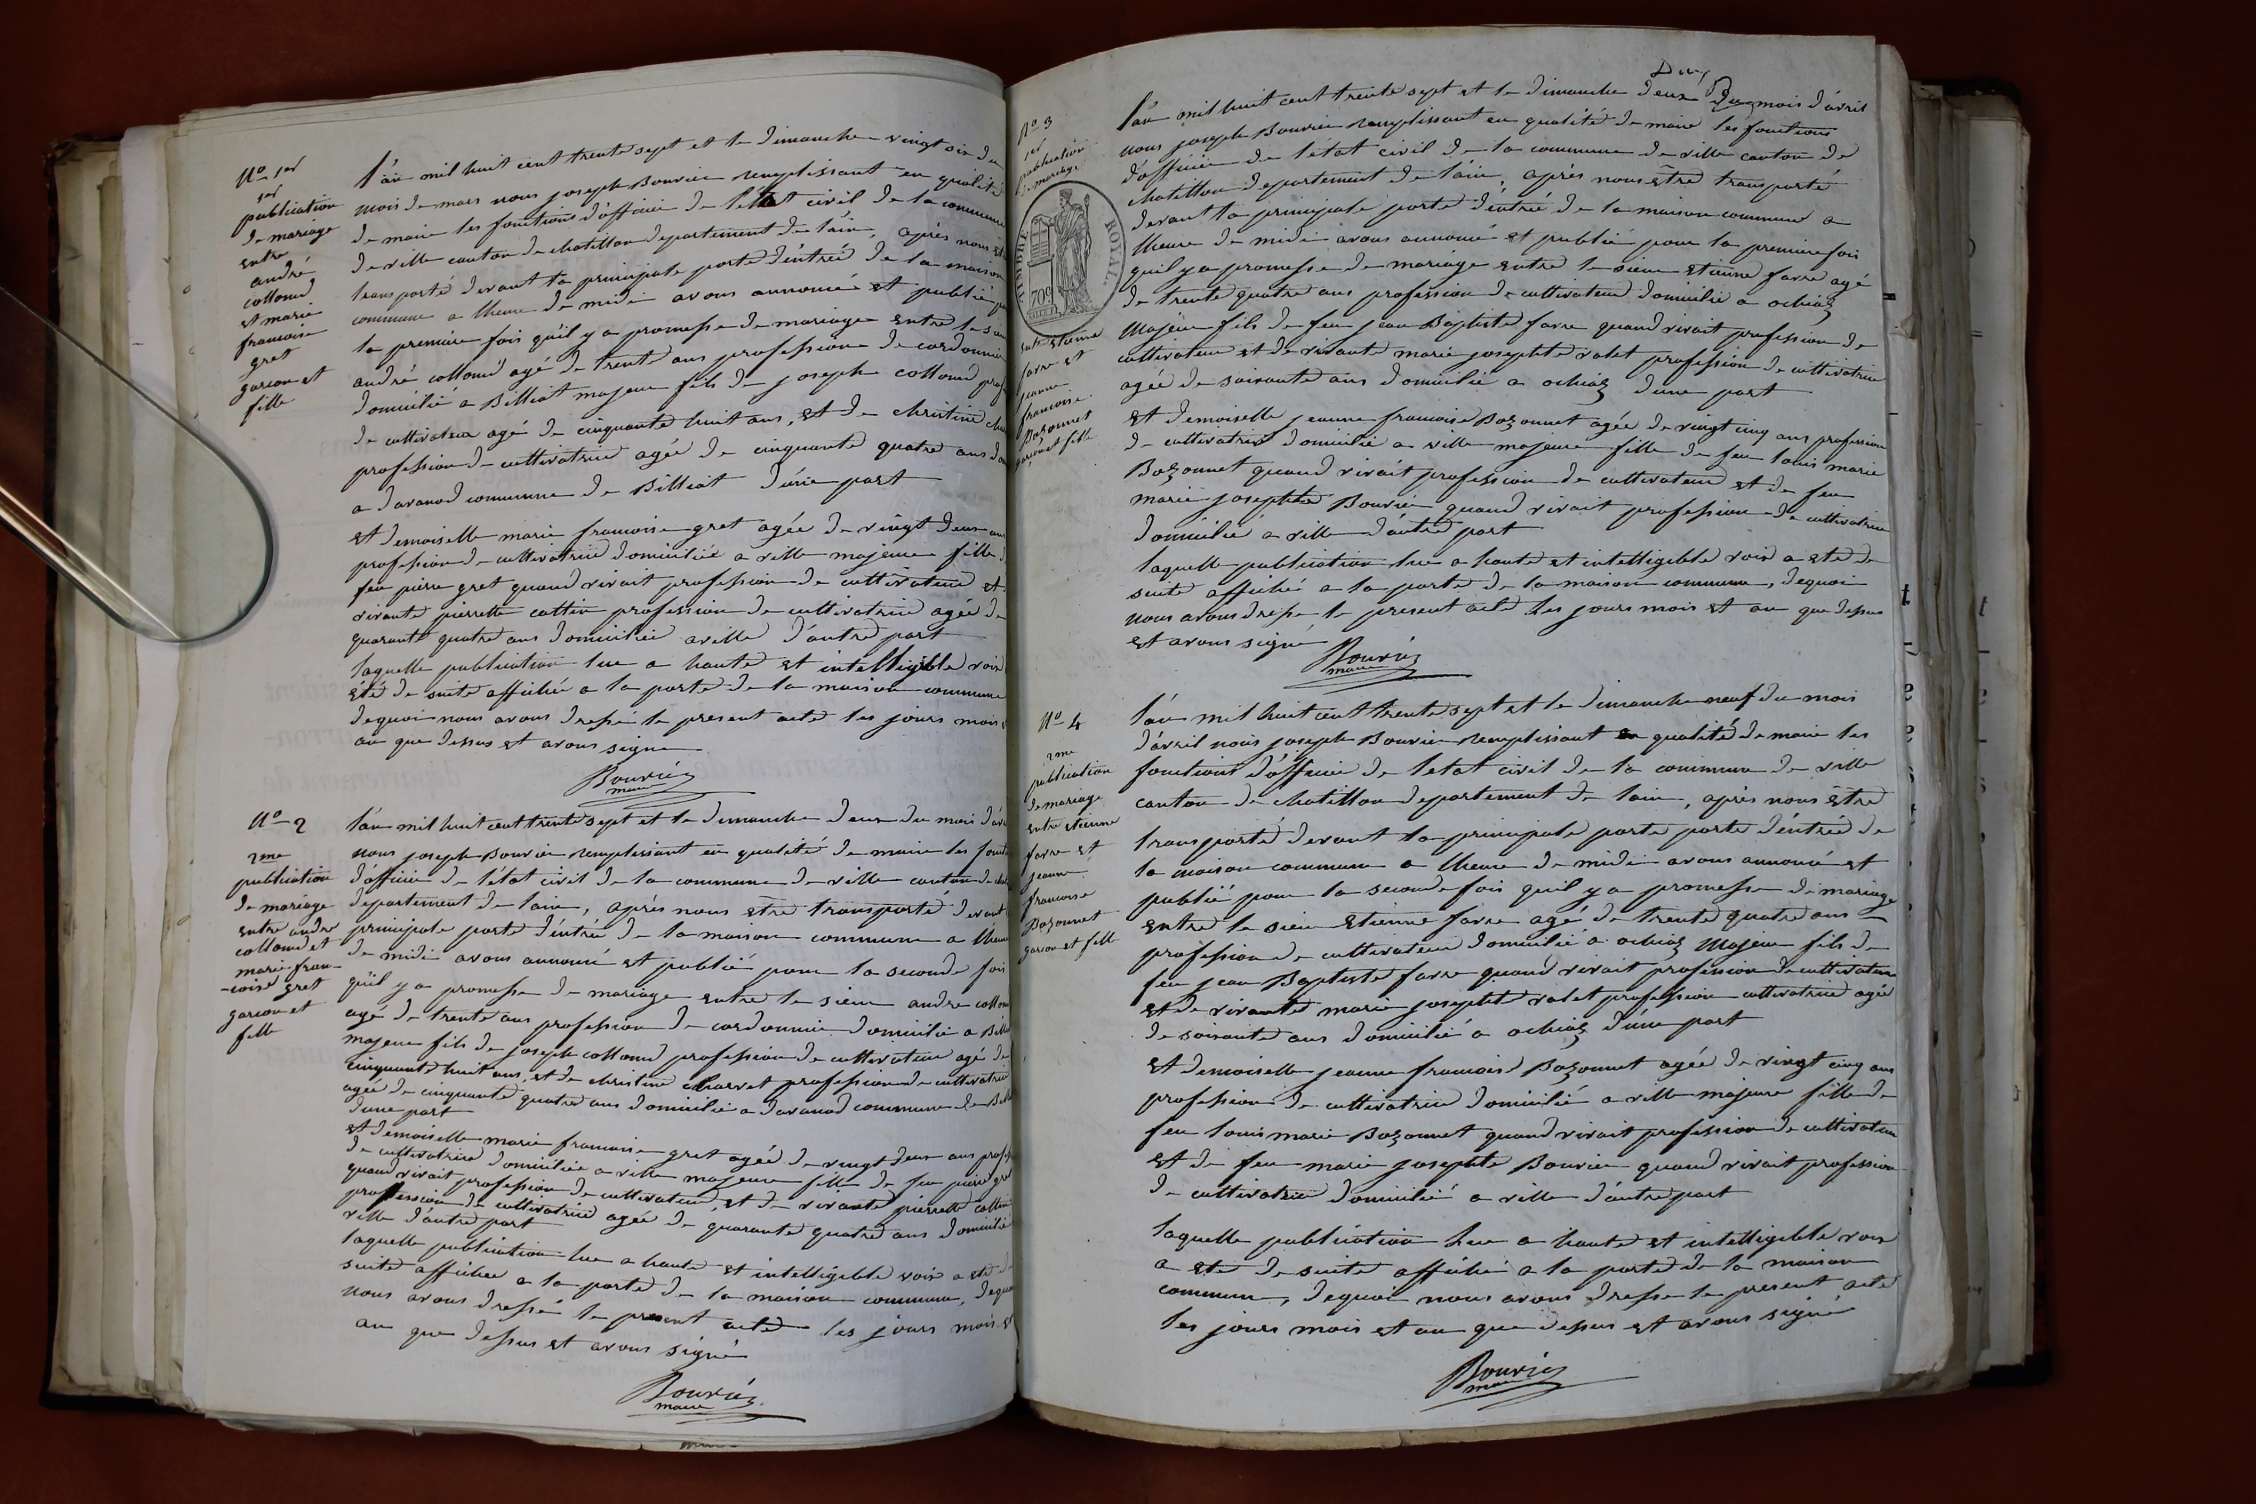 No 1er
1er
publication
de mariage
entre
andré
colloud
et marie
francoise
gret
garcon et
fille
l'an mil huit cent trente sept et le dimanche vingt six du
mois de mars nous joseph Bouvier remplissant en qualité
de maire les fonctions d'officier de letat civil de la commune
de ville canton de chatillon departement de l'ain, après nous
transporté devant la principale porte d'éntrée de la maison
commune a lheure de midi avons annoncé et publié
la première fois qu'il y a promesse de mariage entre le
andré colloud agé de trente ans profession de cordonnier
domicilié a Billiat majeur fils de joseph colloud
de cultivateur agé de cinquante huit ans, et de christine
profession de cultivatrice agée de cinquante quatre ans
a davanod commune de Billiat d'une part
et demoiselle marie francoise gret agée de vingt deux
profession de cultivatrice domiciliée a ville majeure fille
feu pierre gret quand vivait profession de cultivateur et
vivante pierrette cottin profession de cultivatrice agée de
quarante quatre ans domiciliée a ville d'autre part
laquelle publication lue a haute et intelligible voix
été de suite affichée a la porte de la maison commune
dequoi nous avons dressé le present acte les jours mois
an que dessus et avons signé
Bouvier
maire
No 2
2me
publication
de mariage
entre andre
colloud et
marie fran-
-coise gret
garcon et
fille
l'an mil huit cent trente sept et le dimanche deux du mois
nous joseph Bouvier remplissant en qualité de maire les
d'officier de l'état civil de la commune de ville canton de
departement de lain, après nous etre transporté devant
principale porte d'éntrée de la maison commune a
de midi avons annoncé et publié pour la seconde fois
qu'il y a promesse de mariage entre le sieur andre
agé de trente ans profession de cordonnier domicilié a
majeur fils de joseph colloud profession de cultivateur agé de
cinquante huit ans, et de christine charvet profession de cultivatrice
agee de cinquante quatre ans domicilié a davanod commune de
dune part
et demoiselle marie francoise gret agée de vingt deux ans
de cultivatrice domiciliée a ville majeure fille de feu pierre
quand vivait profession de cultivateur, et de vivante pierrette
profession de cultivatrice agée de quarante quatre ans domiciliée
ville d'autre part
laquelle publication lue a haute et intelligible voix a eté
suite affichée a la porte de la maison commune,
nous avons dressé le present acte les jours mois et
an que dessus et avons signé
Bouvier
maire
No 3
1er
publication
de mariage
TIMBRE ROYAL
70c
entre etienne
favre et
jeanne
francoise
Bozonnet
garcon et fille
l'an mil huit cent trente sept et le dimanche deux mois d'avril
nous joseph Bouvier remplissant en qualité de maire les fonctions
d'officier de letat civil de la commune de ville canton de
chatillon departement de l'ain, après nous etre transporté
devant la principale porte d'éntrée de la maison commune a
lheure de midi avons annoncé et publié pour la premiere fois
quil y a promesse de mariage entre le sieur etienne favre agé
de trente quatre ans profession de cultivateur domicilié a ochiaz
Majeur fils de feu jean Baptiste favre quand vivait profession de
cultivateur et de vivante marie josephte valet profession de cultivatrice
agée de soixante ans domicilié a ochiaz dune part
et demoiselle jeanne francoise Bozonnet agée de vingt cinq ans profession
de cultivatrice domicilié a ville majeure fille de feu louis marie
Bozonnet quand vivait profession de cultivateur et de feu
marie josephte Bouvier quand vivait profession de cultivatrice
domicilié a ville d'autre part
laquelle publication lue a haute et intelligible voix a eté de
suite affiché a la porte de la maison commune, dequoi
nous avons dressé le present acte les jours mois et an que dessus
et avons signé
Bouvier
maire
No 4
2me
publication
de mariage
entre etienne
favre et
jeanne
francoise
Bozonnet
garcon et fille
l'an mil huit cent trente sept et le dimanche neuf du mois
d'avril nous joseph Bouvier remplissant en qualité de maire les
fonctions d'officier de letat civil de la commune de ville
canton de chatillon departement de lain, après nous être
transporté devant la principale porte porte d'éntrée de
la maison commune a lheure de midi avons annoncé et
publié pour la seconde fois quil y a promesse de mariage
entre le sieur etienne favre agé de trente quatre ans
profession de cultivateur domicilié a ochiaz Majeur fils de
feu jean Baptiste favre quand vivait profession de cultivateur
et de vivante marie josephte valet profession cultivatrice agée
de soixante ans domicilié a ochiaz d'une part
et demoiselle jeanne francoise Bozonnet agée de vingt cinq ans
profession de cultivatrice domicilié a ville majeure fille de
feu louis marie Bozonnet quand vivait profession de cultivateur
et de feu marie josephte Bouvier quand vivait profession
de cultivatrice domicilié a ville d'autre part
laquelle publication lue a haute et intelligible voix
a eté de suite affiché a la porte de la maison
commune, dequoi nous avons dresse le present acte
les jours mois et an que dessus et avons signé
Bouvier
maire